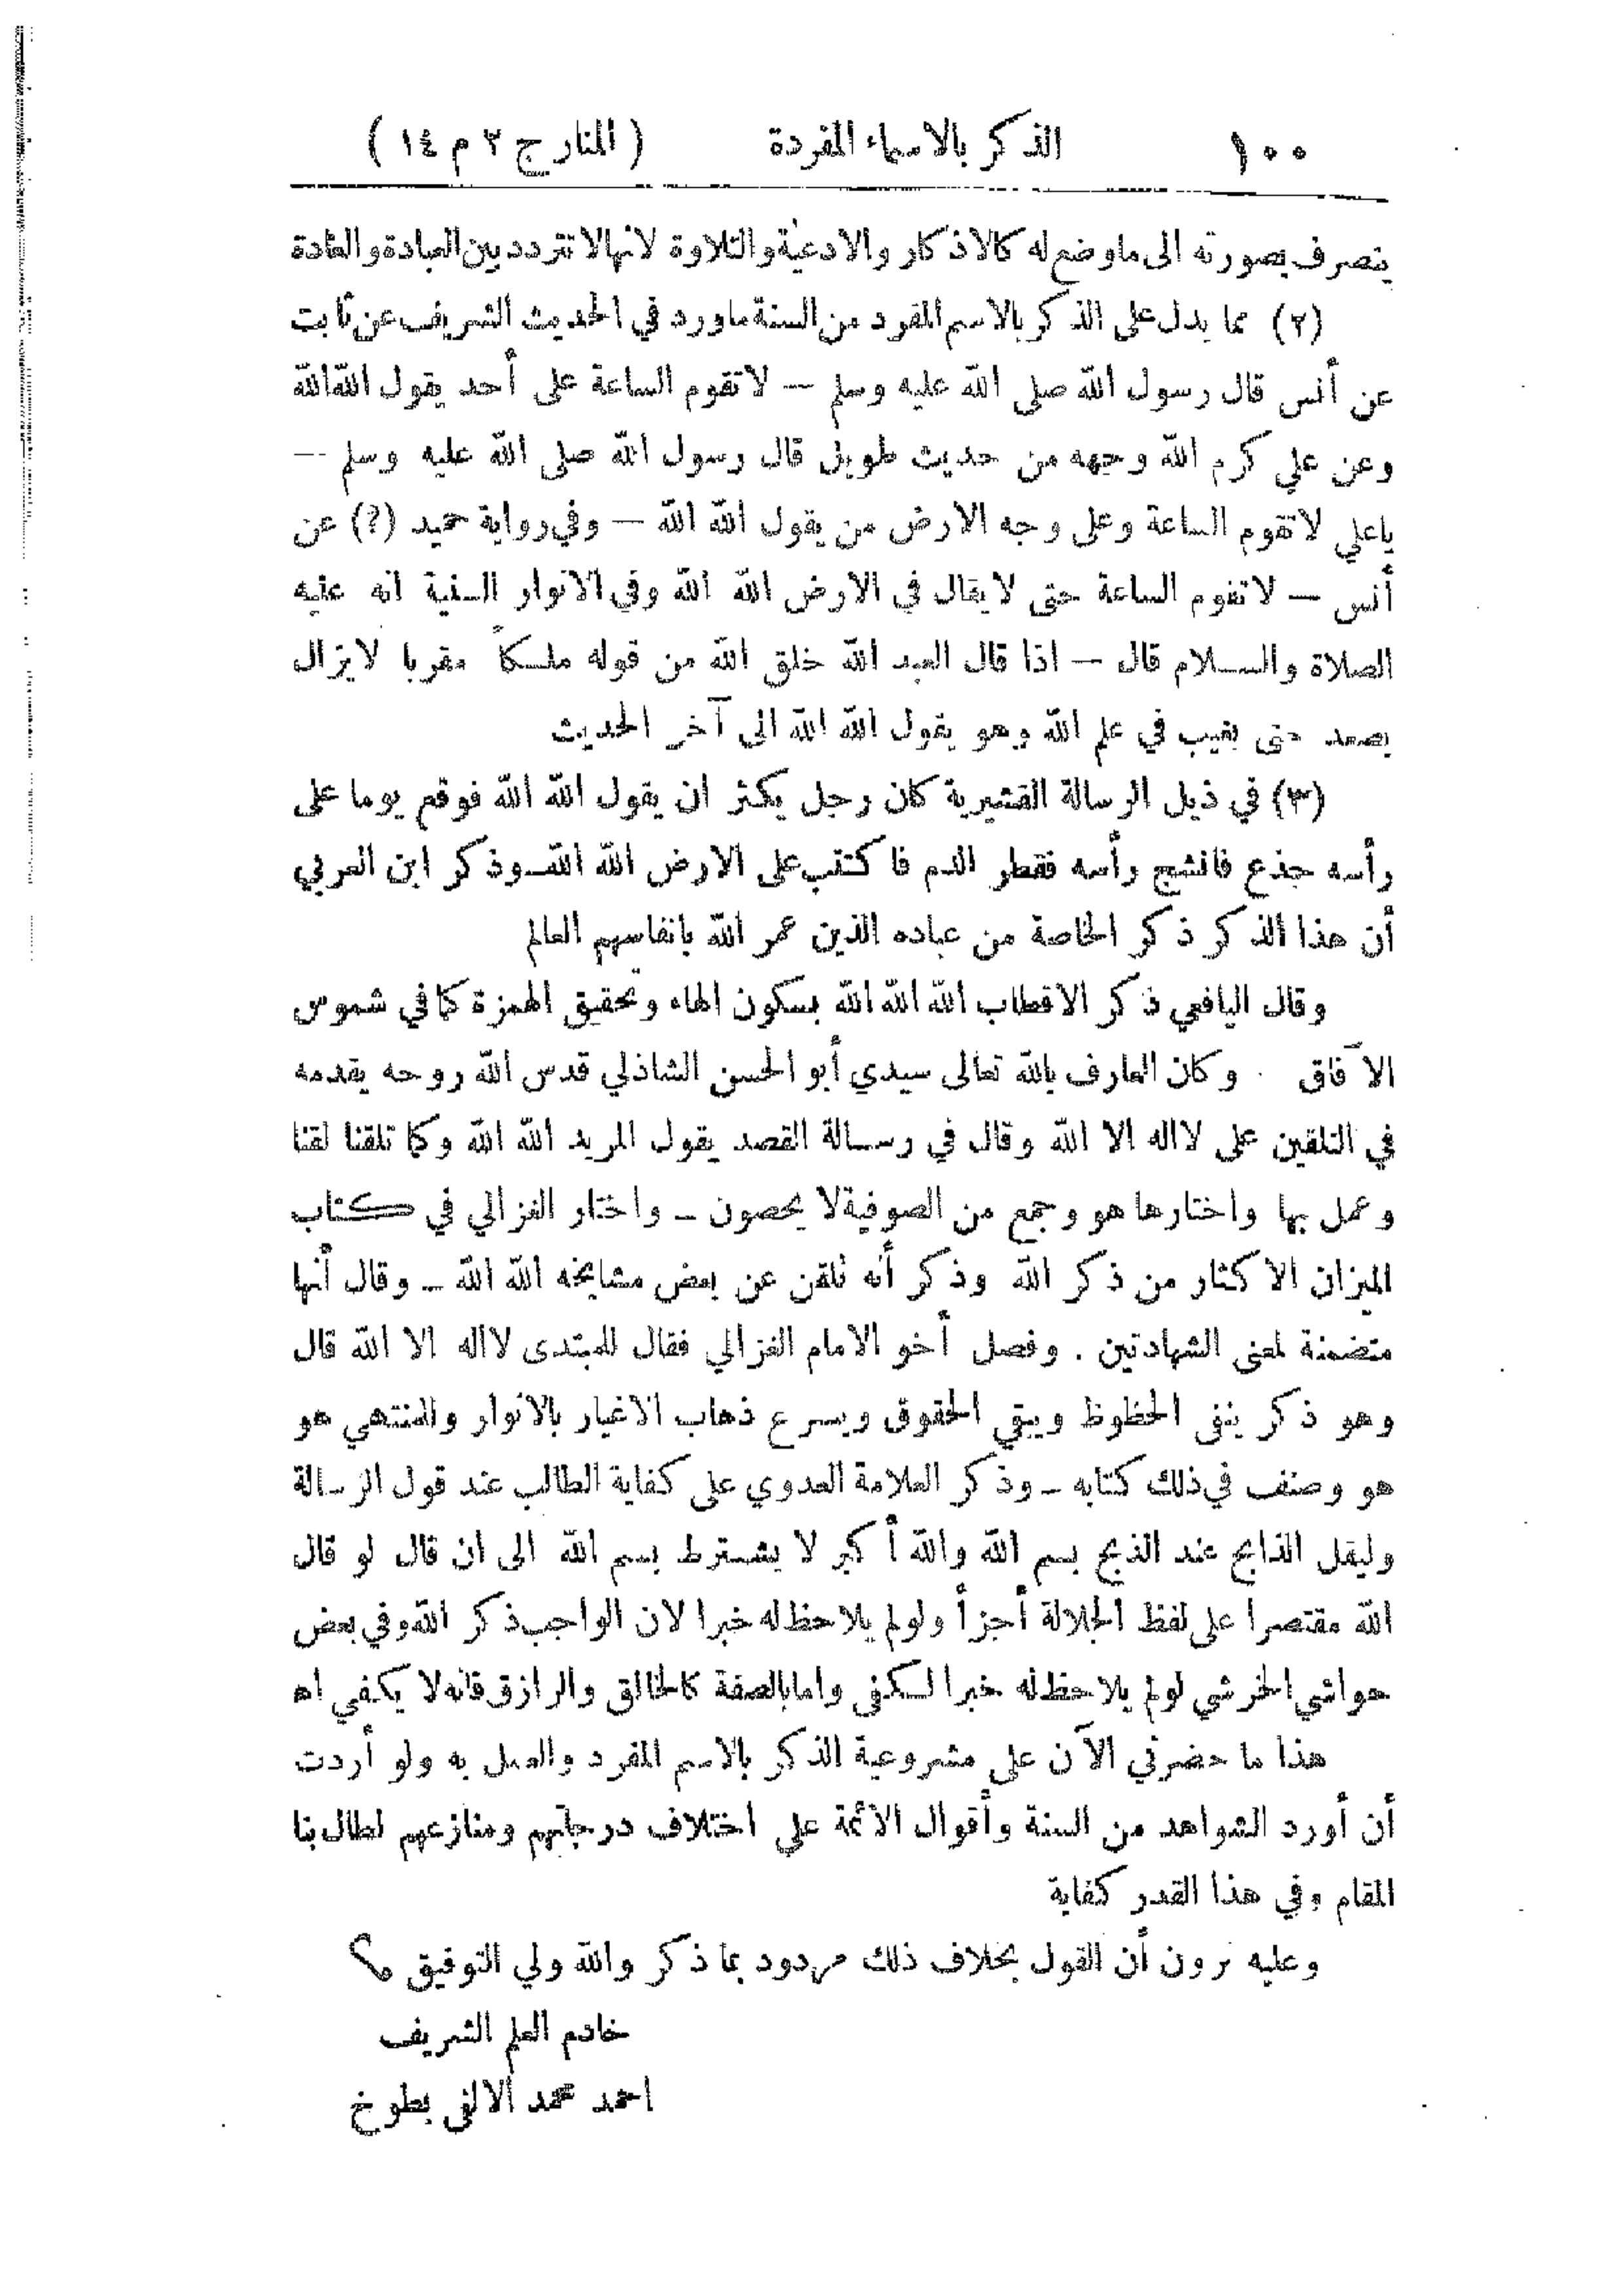 ١٠٠ الذكر بالاسماء المفردة ( المنار ج ٢ م ١٤ )
ينصرف بصورته الى ما وضع له كالاذكار والادعية والتلاوة لانها لا تتردد بين العبادة والعادة
(٢) مما يدل على الذكر بالاسم المفرد من السنة ما ورد في الحديث الشريف عن ثابت
عن أنس قال رسول الله صلى الله عليه وسلم — لا تقوم الساعة على أحد يقول الله الله
وعن علي كرم الله وجهه من حديث طويل قال رسول الله صلى الله عليه وسلم —
يا علي لا تقوم الساعة وعلى وجه الارض من يقول الله الله — وفي رواية حميد (?) عن
أنس — لا تقوم الساعة حتى لا يقال في الارض الله الله وفي الانوار السنية انه عليه
الصلاة والسلام قال — اذا قال العبد الله خلق الله من قوله ملكاً مقربا لا يزال
يصعد حتى يغيب في علم الله وهو يقول الله الله الى آخر الحديث
(٣) في ذيل الرسالة القشيرية كان رجل يكثر ان يقول الله الله فوقع يوما على
رأسه جذع فانشج رأسه فقطر الدم فاكتتب على الارض الله الله ــ وذكر ابن العربي
أن هذا الذكر ذكر الخاصة من عباده الذين عمر الله بانفاسهم العالم
وقال اليافعي ذكر الاقطاب الله الله الله بسكون الهاء وتحقيق الهمزة كما في شموس
الآفاق . وكان العارف بالله تعالى سيدي أبو الحسن الشاذلي قدس الله روحه يقدمه
في التلقين على لا اله الا الله وقال في رسالة القصد يقول المريد الله الله وكما تلقنا لقنا
وعمل بها واختارها هو وجمع من الصوفية لا يحصون ــ واختار الغزالي في كتاب
الميزان الاكثار من ذكر الله وذكر أنه تلقن عن بعض مشايخه الله الله ــ وقال أنها
متضمنة لمعنى الشهادتين . وفصل أخو الامام الغزالي فقال للمبتدى لا اله الا الله قال
وهو ذكر ينفي الحظوظ ويبقي الحقوق ويسرع ذهاب الاغيار بالانوار والمنتهي هو
هو وصنف في ذلك كتابه ــ وذكر العلامة العدوي على كفاية الطالب عند قول الرسالة
وليقل الذابح عند الذبح بسم الله والله أكبر لا يشترط بسم الله الى ان قال لو قال
الله مقتصرا على لفظ الجلالة أجزأ ولو لم يلاحظ له خبرا لان الواجب ذكر الله وفي بعض
حواشي الخرشي لو لم يلاحظ له خبرا لكفى واما بالصفة كالخالق والرازق فانه لا يكفي اه
هذا ما حضرني الآن على مشروعية الذكر بالاسم المفرد والعمل به ولو أردت
أن أورد الشواهد من السنة وأقوال الأئمة على اختلاف درجاتهم ومنازعهم لطال بنا
المقام وفي هذا القدر كفاية
وعليه ترون أن القول بخلاف ذلك مردود بما ذكر والله ولي التوفيق
خادم العلم الشريف
احمد محمد الالفي بطوخ